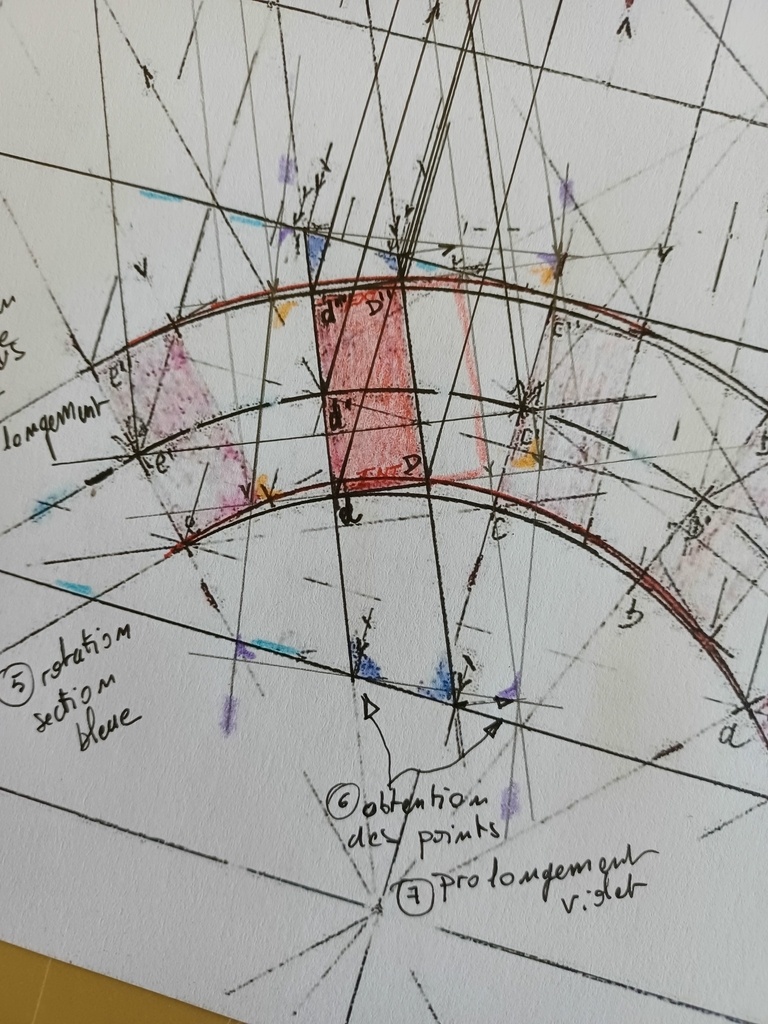 longement
e''
d'''
D''
E''
e'
d''
C'
D
d
C
b
a
⑤ rotation
section
bleue
⑥ obtention
des points
⑦ prolongement
violet